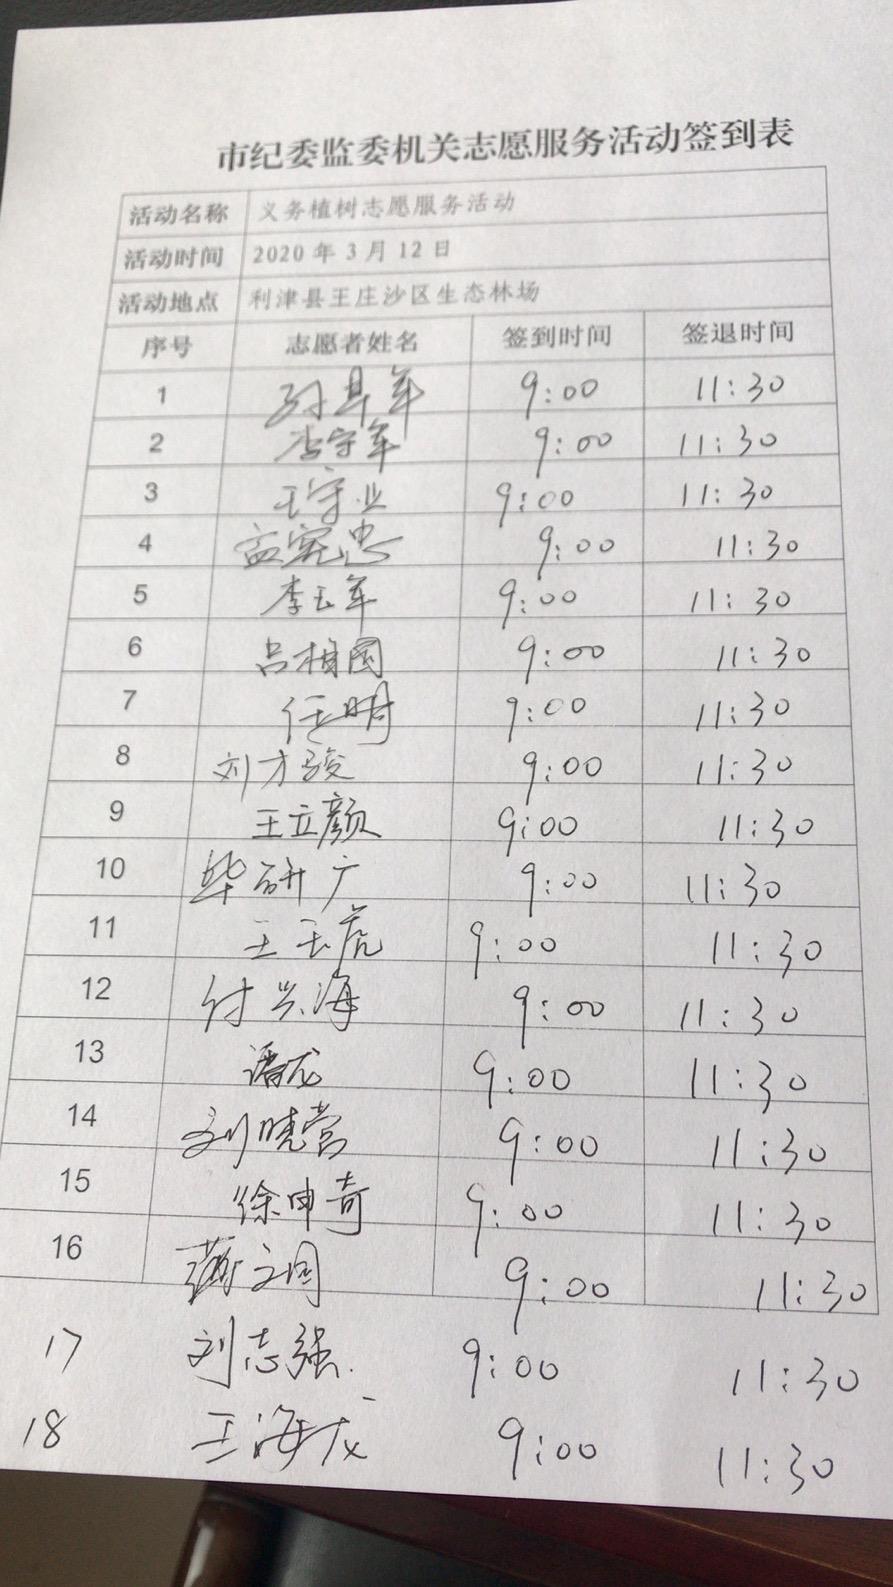 市纪委监委机关志愿服务活动签到表
活动名称 义务植树志愿服务活动
活动时间 2020 年 3 月 12 日
活动地点 利津县王庄沙区生态林场
序号 志愿者姓名 签到时间 签退时间
1 9:00 11:30
2 李宁军 9:00 11:30
3 王守业 9:00 11:30
4 盖宪忠 9:00 11:30
5 李玉军 9:00 11:30
6 吕相国 9:00 11:30
7 任明 9:00 11:30
8 刘才骏 9:00 11:30
9 王立颜 9:00 11:30
10 毕研广 9:00 11:30
11 王玉虎 9:00 11:30
12 付兴海 9:00 11:30
13 潘龙 9:00 11:30
14 刘晓营 9:00 11:30
15 徐申奇 9:00 11:30
16 9:00 11:30
17 刘志强 9:00 11:30
18 王海龙 9:00 11:30